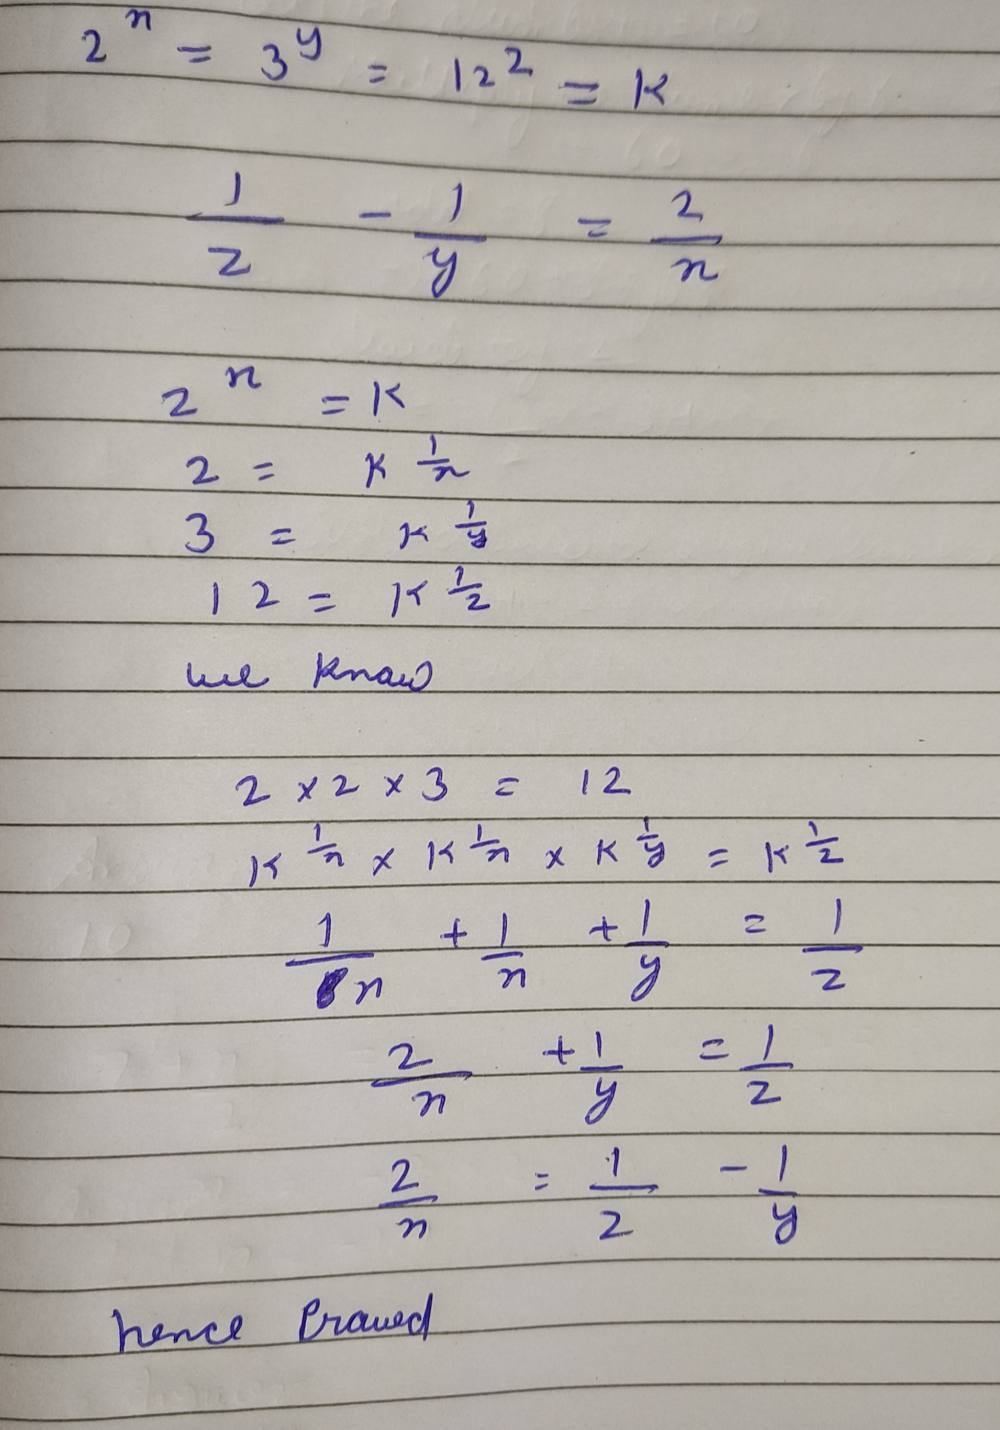 2^n = 3^y = 12^z = K
1/z - 1/y = 2/n
2^n = K
2 = K^1/n
3 = K^1/y
12 = K^1/z
we know
2 × 2 × 3 = 12
K^1/n × K^1/n × K^1/y = K^1/z
1/n + 1/n + 1/y = 1/z
2/n + 1/y = 1/z
2/n = 1/z - 1/y
hence Proved